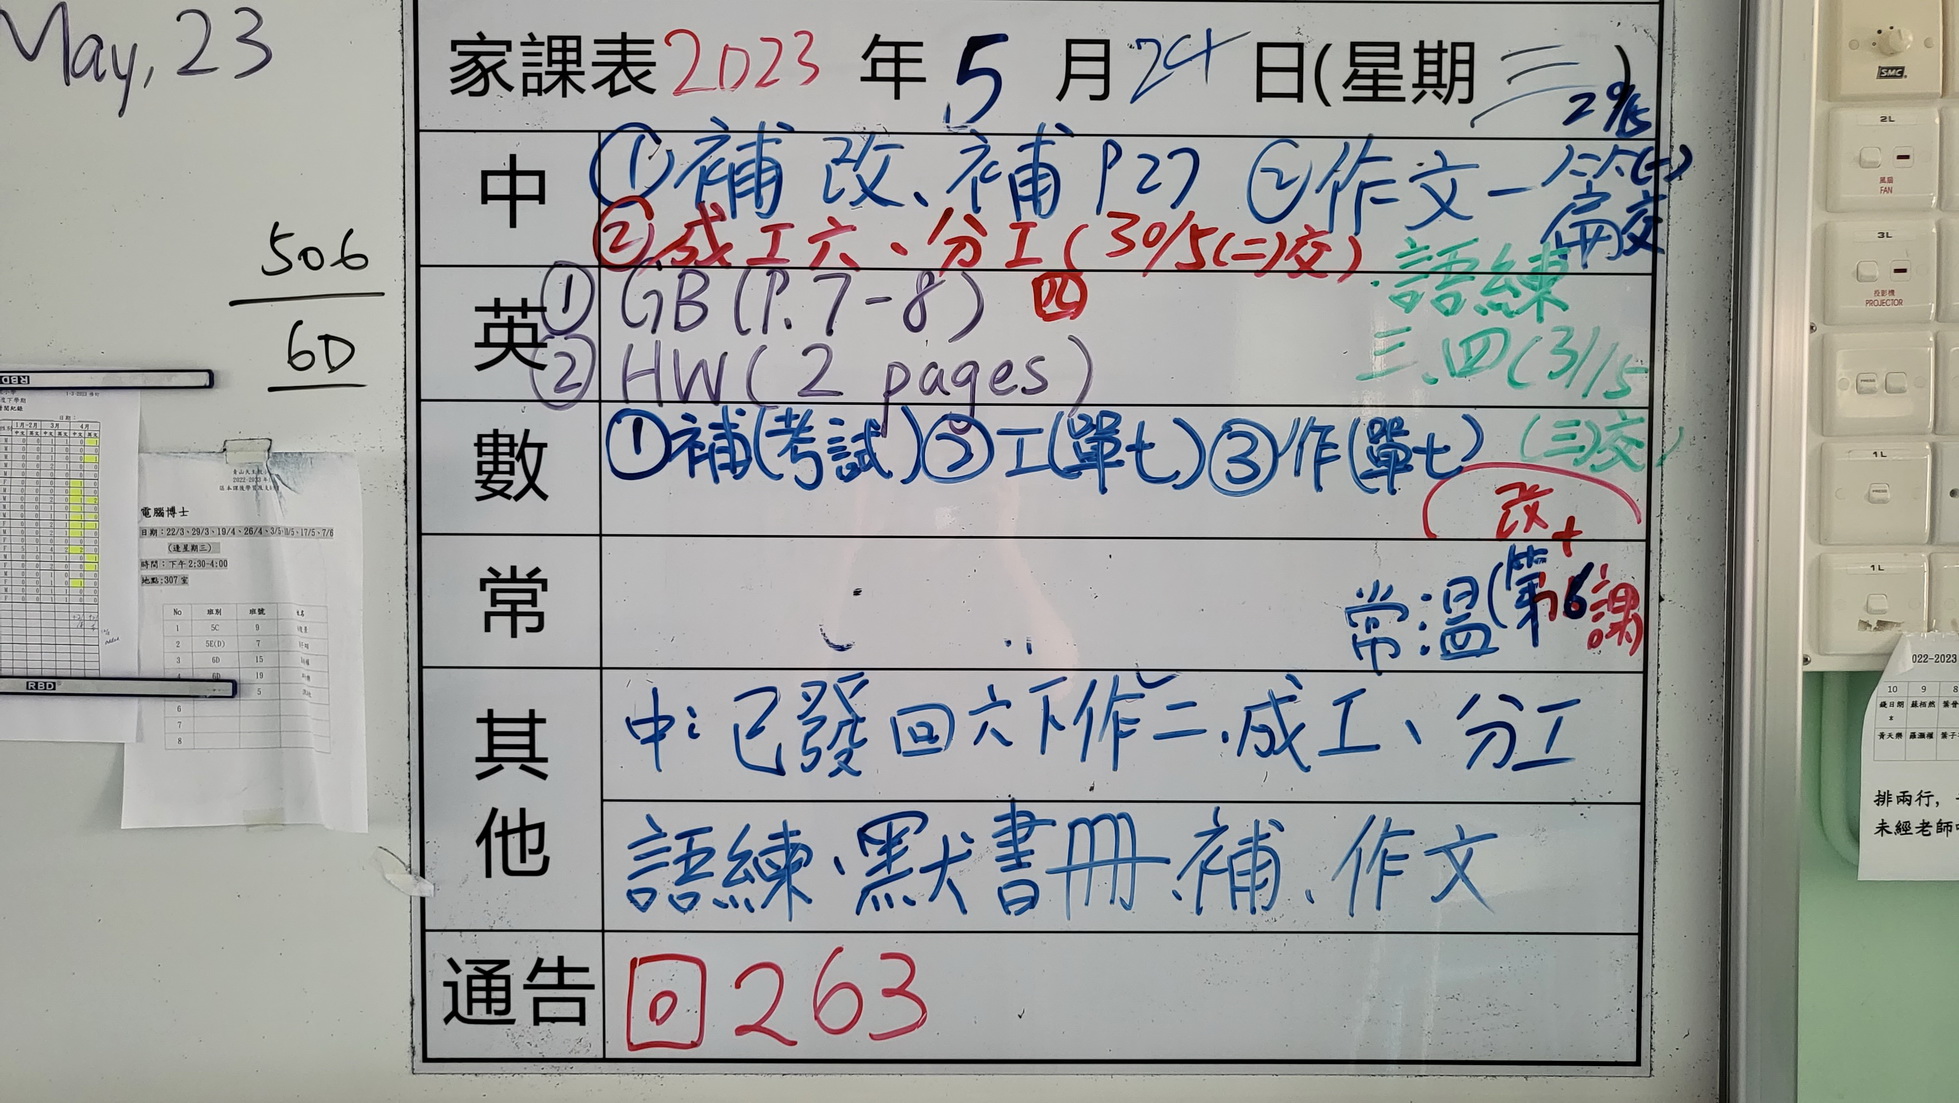 May, 23
506
6D
家課表2023年5月24日(星期三)
29/5
中
①補改、補P27 ②作文一
②成工六、分工(30/5(二)交)
語練
三、四(31/5
(三)交)
英
①GB(P.7-8) 四
②HW(2 pages)
數
①補(考試)②工(單七)③作(單七)
改+
常
常:溫(第6課)
其他
中:已發回六下作二、成工、分工
語練、默書冊、補、作文
通告
回263
RBD
RBD
電腦博士
日期:22/3、29/3、19/4、26/4、3/5、10/5、17/5、7/6
(逢星期三)
時間:下午2:30-4:00
地點:307室
No 班別 班號 姓名
1 5C 9
2 5E(D) 7
3 6D 15
4 6D 19
5
6
7
8
SMC
2L
風扇
FAN
3L
投影機
PROJECTOR
1L
1L
022-2023
10 9 8
排兩行,
未經老師